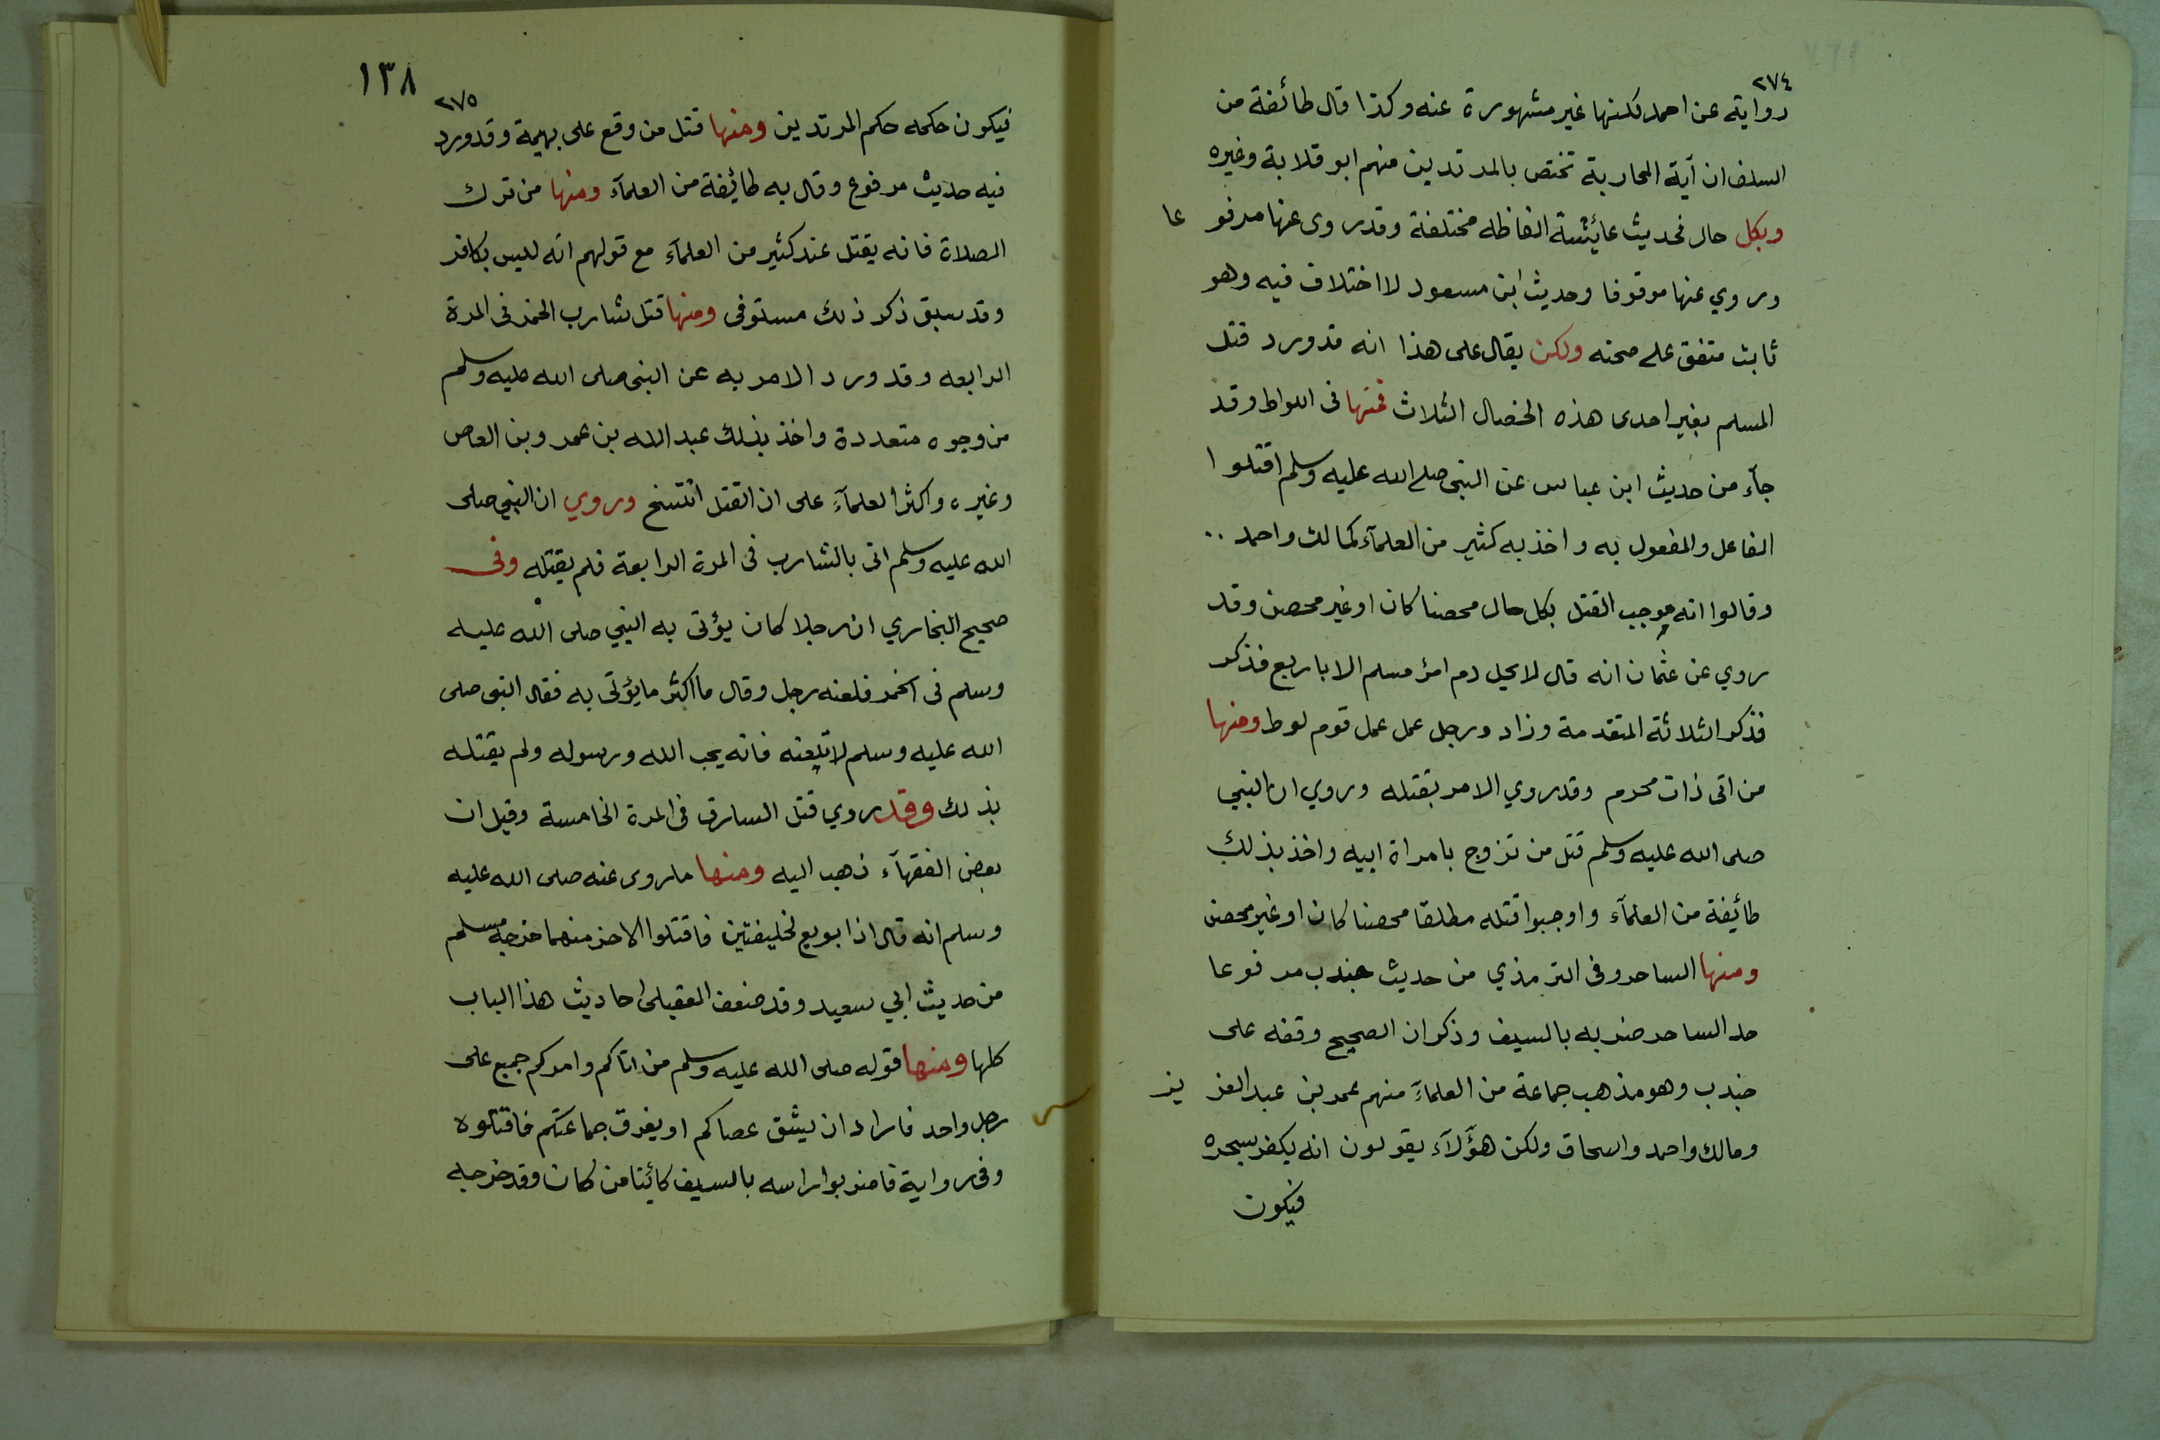 ٢٧٤
رواية عن احمد لكنها غير مشهورة عنه وكذا قال طائفة من
السلف ان آية المحاربة تختص بالمرتدين منهم ابو قلابة وغيره
وبكل حال فحديث عائشة الفاظه مختلفة وقد روى عنها مرفوعا
وروي عنها موقوفا وحديث ابن مسعود لا اختلاف فيه وهو
ثابت متفق على صحته ولكن يقال على هذا انه قد ورد قتل
المسلم بغير احدى هذه الخصال الثلاث فمنها فى اللواط وقد
جآء من حديث ابن عباس عن النبى صلى الله عليه وسلم اقتلوا
الفاعل والمفعول به واخذ به كثير من العلمآء كمالك واحمد ..
وقالوا انه موجب القتل بكل حال محصنا كان او غير محصن وقد
روي عن عثمان انه قال لا يحل دم امرؤ مسلم الا باربع فذكر
فذكر الثلاثة المتقدمة وزاد ورجل عمل عمل قوم لوط ومنها
من اتى ذات محرم وقد روي الامر بقتله وروي ان النبي
صلى الله عليه وسلم قتل من تزوج بامراة ابيه واخذ بذلك
طائفة من العلمآء واوجبوا قتله مطلقا محصنا كان او غير محصن
ومنها الساحر وفى الترمذي من حديث جندب مرفوعا
حد الساحر ضربه بالسيف وذكر ان الصحيح وقفه على
جندب وهو مذهب جماعة من العلمآء منهم عمر بن عبد العزيز
ومالك واحمد واسحاق ولكن هؤلآء يقولون انه يكفر بسحره
فيكون
١٣٨
٢٧٥
فيكون حكمه حكم المرتدين ومنها قتل من وقع على بهيمة وقد ورد
فيه حديث مرفوع وقال به طائيفة من العلمآء ومنها من ترك
الصلاة فانه يقتل عند كثير من العلمآء مع قولهم انه ليس بكافر
وقد سبق ذكر ذلك مستوفى ومنها قتل شارب الخمر فى المرة
الرابعه وقد ورد الامر به عن النبى صلى الله عليه وسلم
من وجوه متعددة واخذ بذلك عبد الله بن عمر وبن العاص
وغيره واكثر العلمآء على ان القتل انتسخ وروي ان النبي صلى
الله عليه وسلم اتى بالشارب فى المرة الرابعة فلم يقتله وفى
صحيح البخاري ان رجلا كان يؤتى به النبي صلى الله عليه
وسلم فى الخمر فلعنه رجل وقال ما اكثر ما يؤتى به فقال النبى صلى
الله عليه وسلم لا تلعنه فانه يحب الله ورسوله ولم يقتله
بذلك وقد روي قتل السارق فى المرة الخامسة وقيل ان
بعض الفقهآء ذهب اليه ومنها ما روى عنه صلى الله عليه
وسلم انه قال اذا بويع لخليفتين فاقتلوا الاخر منهما خرجه مسلم
من حديث ابي سعيد وقد ضعف العقيلى احاديث هذا الباب
كلها ومنها قوله صلى الله عليه وسلم من اتاكم وامركم جميع على
رجل واحد فاراد ان يشق عصاكم او يفرق جماعتكم فاقتلوه
وفى رواية فاضربوا راسه بالسيف كائنا من كان وقد خرجه